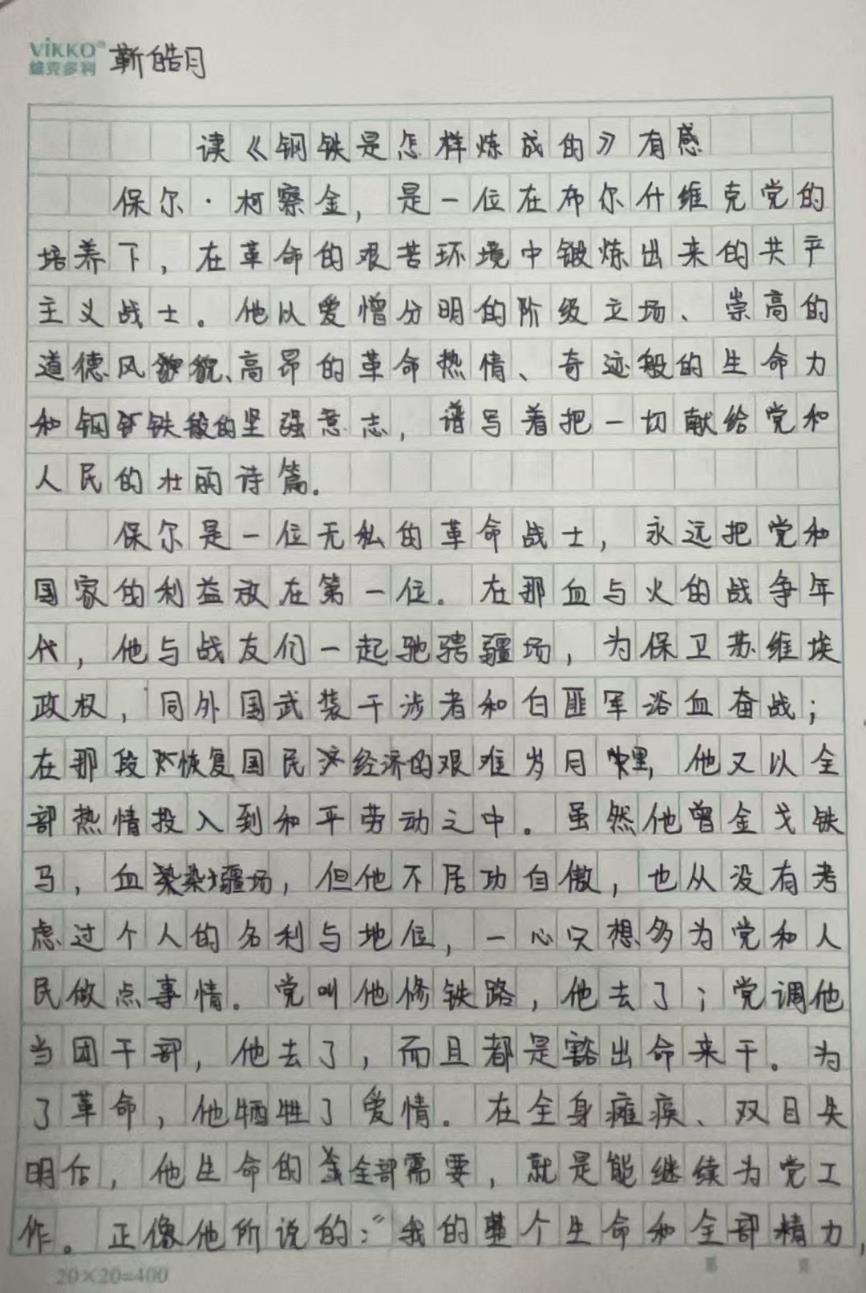 VIKKO
维克多利
靳皓月
读《钢铁是怎样炼成的》有感
保尔·柯察金，是一位在布尔什维克党的
培养下，在革命的艰苦环境中锻炼出来的共产
主义战士。他从爱憎分明的阶级立场、崇高的
道德风貌、高昂的革命热情、奇迹般的生命力
和钢铁般的坚强意志，谱写着把一切献给党和
人民的壮丽诗篇。
保尔是一位无私的革命战士，永远把党和
国家的利益放在第一位。在那血与火的战争年
代，他与战友们一起驰骋疆场，为保卫苏维埃
政权，同外国武装干涉者和白匪军浴血奋战；
在那段恢复国民经济的艰难岁月里，他又以全
部热情投入到和平劳动之中。虽然他曾金戈铁
马，血染疆场，但他不居功自傲，也从没有考
虑过个人的名利与地位，一心只想多为党和人
民做点事情。党叫他修铁路，他去了；党调他
当团干部，他去了，而且都是豁出命来干。为
了革命，他牺牲了爱情。在全身瘫痪、双目失
明后，他生命的全部需要，就是能继续为党工
作。正像他所说的：“我的整个生命和全部精力，
20×20=400
第 页